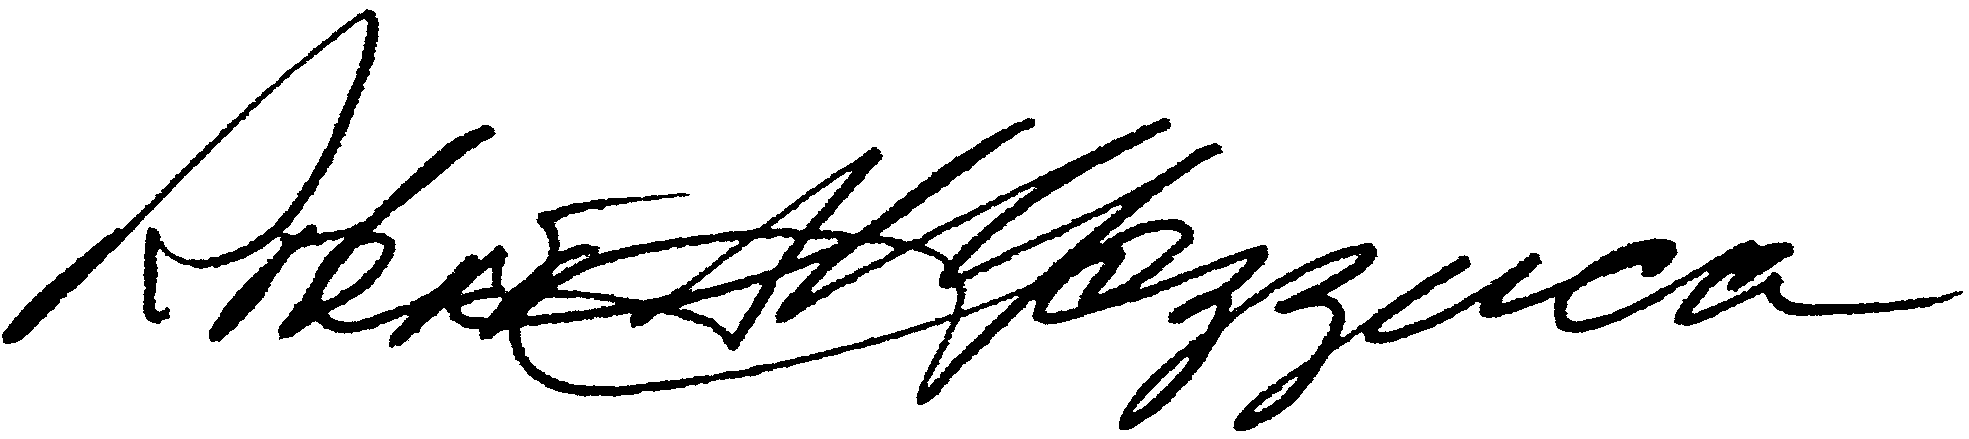 Robert A Mazzuca